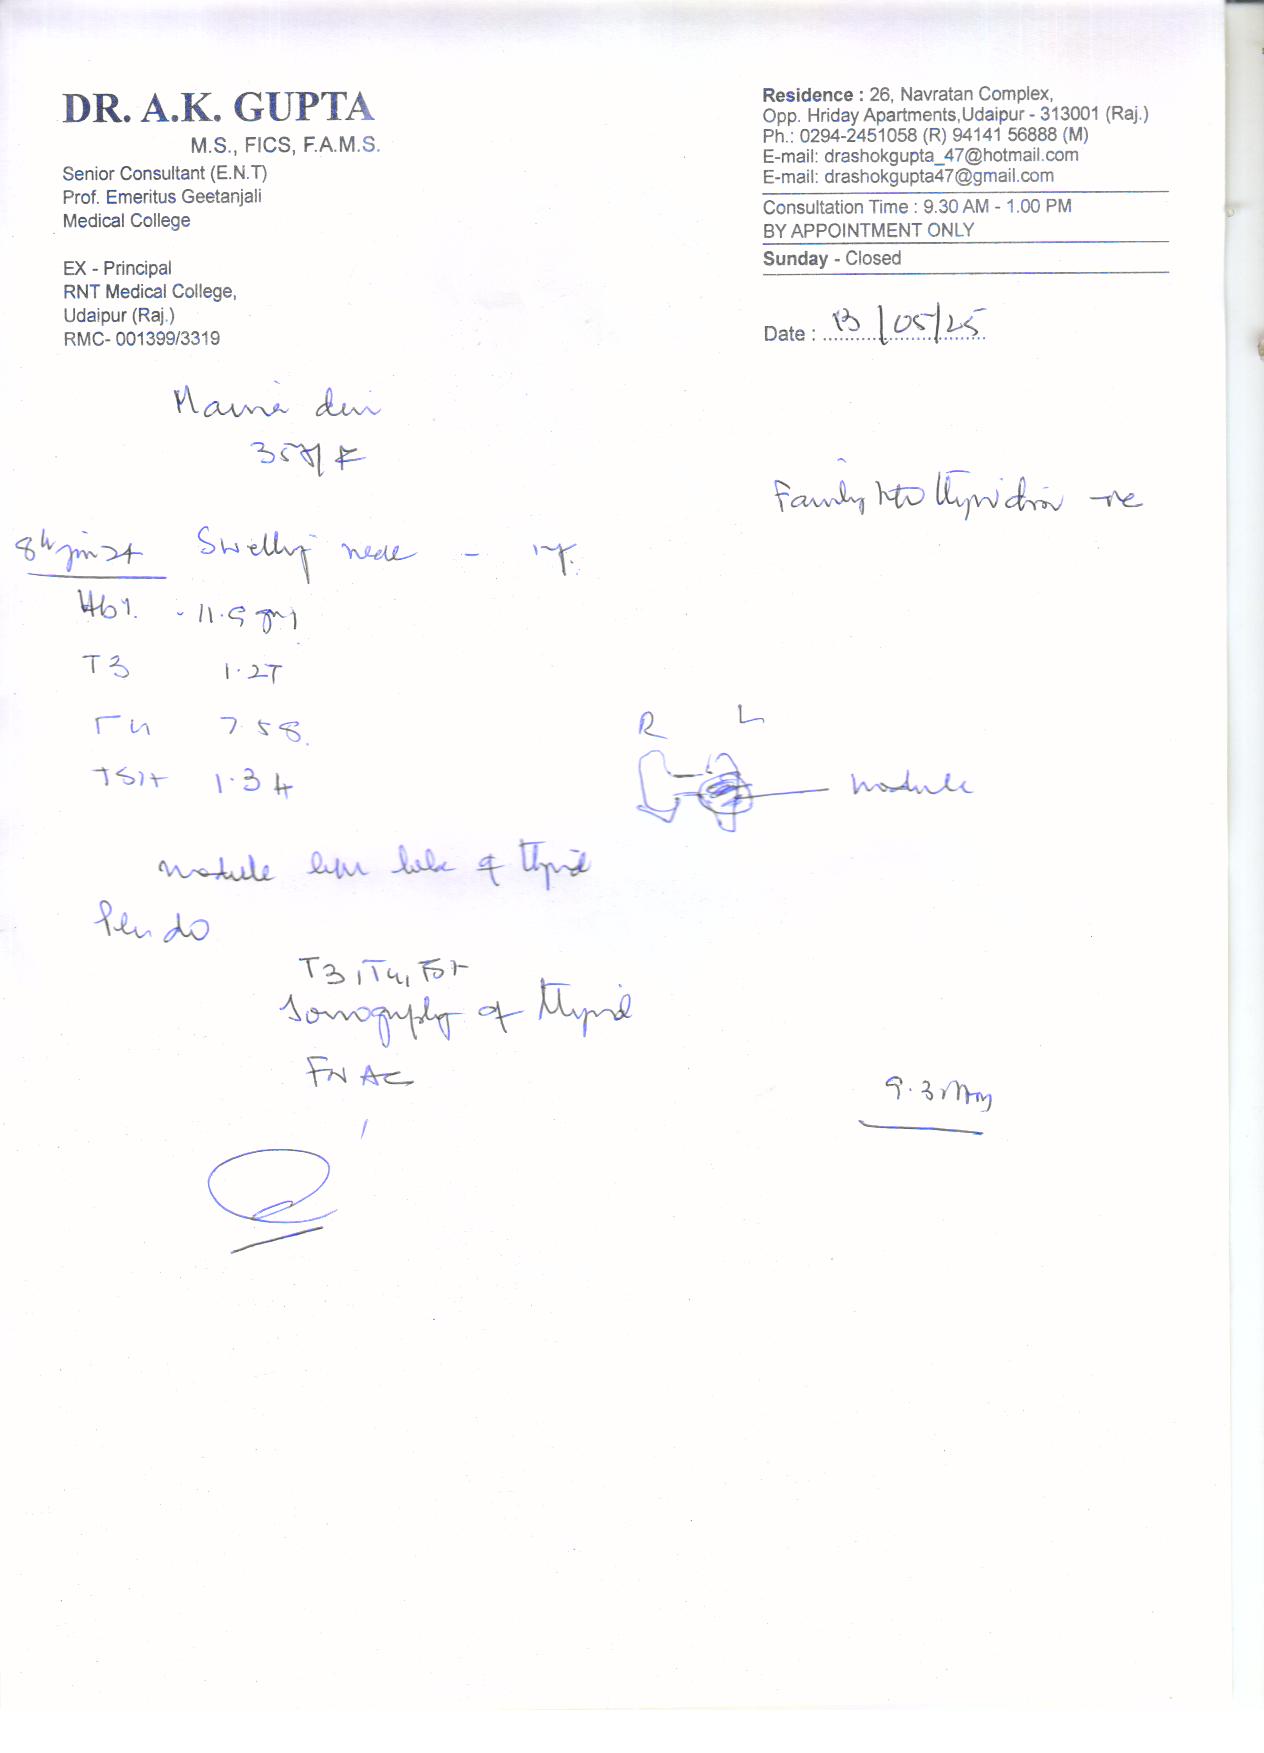 DR. A.K. GUPTA
M.S., FICS, F.A.M.S.
Senior Consultant (E.N.T)
Prof. Emeritus Geetanjali
Medical College
EX - Principal
RNT Medical College,
Udaipur (Raj.)
RMC- 001399/3319
Residence : 26, Navratan Complex,
Opp. Hriday Apartments,Udaipur - 313001 (Raj.)
Ph.: 0294-2451058 (R) 94141 56888 (M)
E-mail: drashokgupta_47@hotmail.com
E-mail: drashokgupta47@gmail.com
Consultation Time : 9.30 AM - 1.00 PM
BY APPOINTMENT ONLY
Sunday - Closed
Date : 13/05/25
35 F
Family thyroid -ve
Swelling neck -
Hb%. - 11.9 gm
T3 1.27
T4 7.58
TSH 1.34
R L
Nodule
Nodule lobe of thyroid
do
T3, T4, TSH
Sonography of thyroid
FNAC